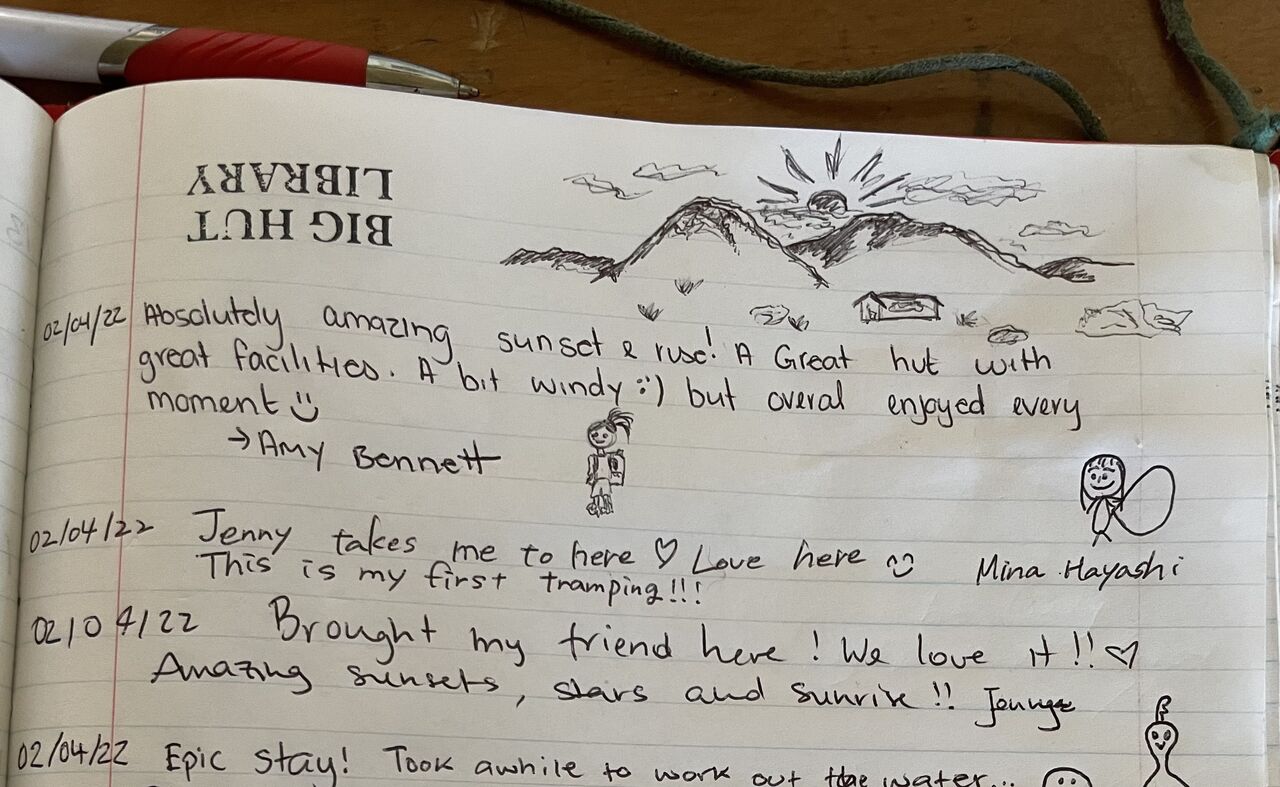 BIG HUT
LIBRARY
02/04/22 Absolutely amazing sunset & rise! A Great hut with
great facilities. A bit windy :') but overal enjoyed every
moment
→ Amy Bennett
02/04/22 Jenny takes me to here ♡ Love here
This is my first tramping!!! Mina Hayashi
02/04/22 Brought my friend here! We love it!! ♡
Amazing sunsets, stars and sunrise!!
02/04/22 Epic stay! Took awhile to work out the water...